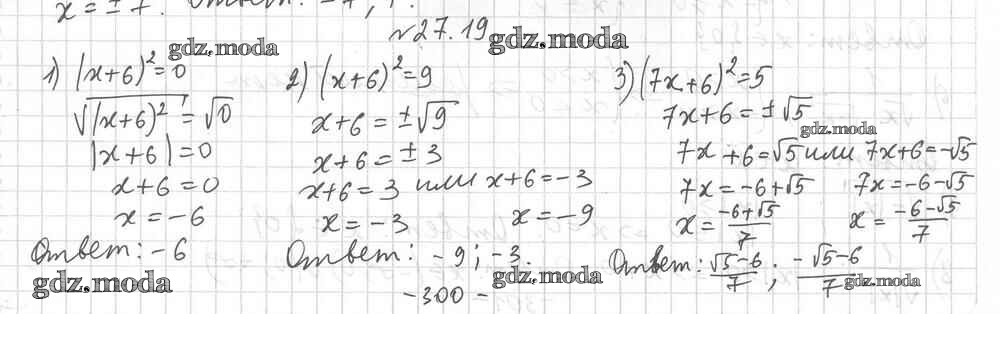 x = ± 7. Ответ: -7; 7.
№27.19
gdz.moda
gdz.moda
1) (x+6)²=0
√(x+6)² = √0
|x+6|=0
x+6=0
x=-6
Ответ: -6
gdz.moda
2) (x+6)²=9
x+6=±√9
x+6=±3
x+6=3 или x+6=-3
x=-3 x=-9
Ответ: -9; -3.
gdz.moda
3) (7x+6)²=5
7x+6=±√5
gdz.moda
7x+6=√5 или 7x+6=-√5
7x=-6+√5 7x=-6-√5
x=(-6+√5)/7 x=(-6-√5)/7
Ответ: (√5-6)/7; (-√5-6)/7
gdz.moda
-300-